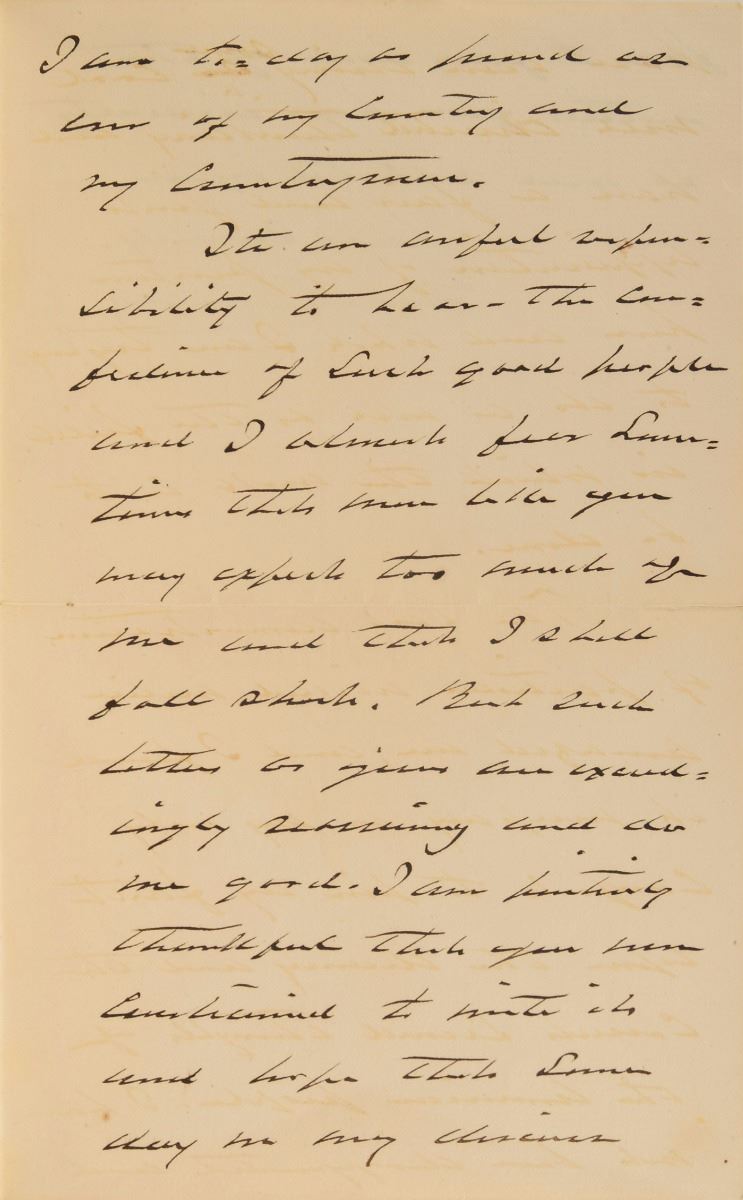 I am to=day as proud as
ever of my Country and
my Countrymen.
It's an awful respon=
sibility to bear the Con=
fidence of such good people
and I almost fear Some=
times that men like you
may expect too much of
me and that I shall
fall short. But such
letters as yours are exceed=
ingly reassuring and do
me good. I am
thankful that you were
Constrained to write it
and hope that Some
day we may discuss